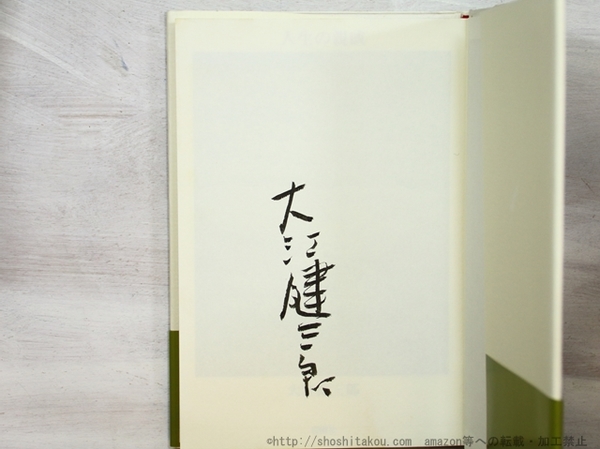 大江健三郎
©http://shoshitakou.com amazon等への転載・加工禁止